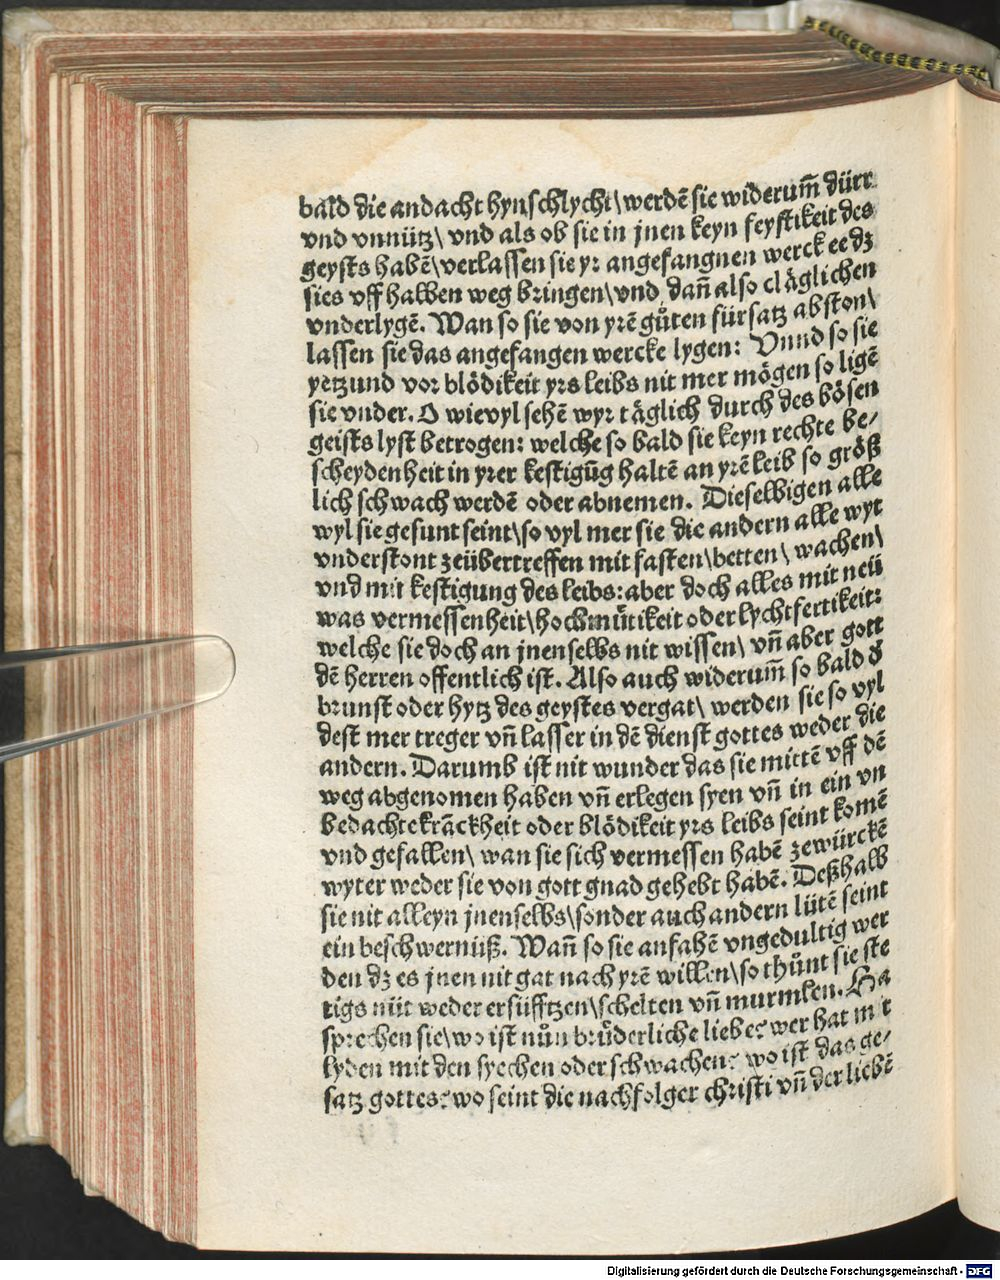 bald die andacht hynschlycht\ werdē sie widerum̄ dürr
vnd vnnütz\ vnd als ob sie in jnen keyn feyſtikeit des
geyſts habē\ verlaſſen sie yr angefangnen werck ee dz
sies vff halben weg bringen\ vnd dañ also cläglichen
vnderlygē. Wan so sie von yrē gůten fürsatz abſton\
laſſen sie das angefangen wercke lygen: Vnnd so sie
yetzund vor blödikeit yrs leibs nit mer mögen so ligē
sie vnder. O wievyl sehē wyr täglich durch des bösen
geiſts lyſt betrogen: welche so bald sie keyn rechte be/
scheydenheit in yrer keſtigūg haltē an yrē leib so größ
lich schwach werdē oder abnemen. Dieselbigen alle
wyl sie gesunt seint\ so vyl mer sie die andern alle wyt
vnderſtont zeübertreffen mit faſten\ betten\ wachen\
vnd mit keſtigung des leibs: aber doch alles mit neü
was vermeſſenheit\ hochmůtikeit oder lychtfertikeit:
welche sie doch an jnenselbs nit wiſſen\ vñ aber gott
dē herren offentlich iſt. Also auch widerum̄ so bald d̄
brunſt oder hytz des geyſtes vergat\ werden sie so vyl
deſt mer treger vñ laſſer in dē dienſt gottes weder die
andern. Darumb iſt nit wunder das sie mittē vff dē
weg abgenomen haben vñ erlegen syen vñ in ein vn
bedachte krāckheit oder blödikeit yrs leibs seint komē
vnd gefallen\ wan sie sich vermeſſen habē zewürckē
wyter weder sie von gott gnad gehebt habē. Deßhalb
sie nit alleyn jnenselbs\ sonder auch andern lütē seint
ein beschwernüß. Wañ so sie anfahē vngedultig wer
den dz es jnen nit gat nach yrē willen\ so thůnt sie ſte
tigs nüt weder ersüfftzen\ schelten vñ murmlen. Da
sprechen sie\ wo iſt nůn brüderliche liebe? wer hat mit
lyden mit den syechen oder schwachen? wo iſt das ge/
satz gottes? wo seint die nachfolger chriſti vñ der liebē
Digitalisierung gefördert durch die Deutsche Forschungsgemeinschaft - DFG